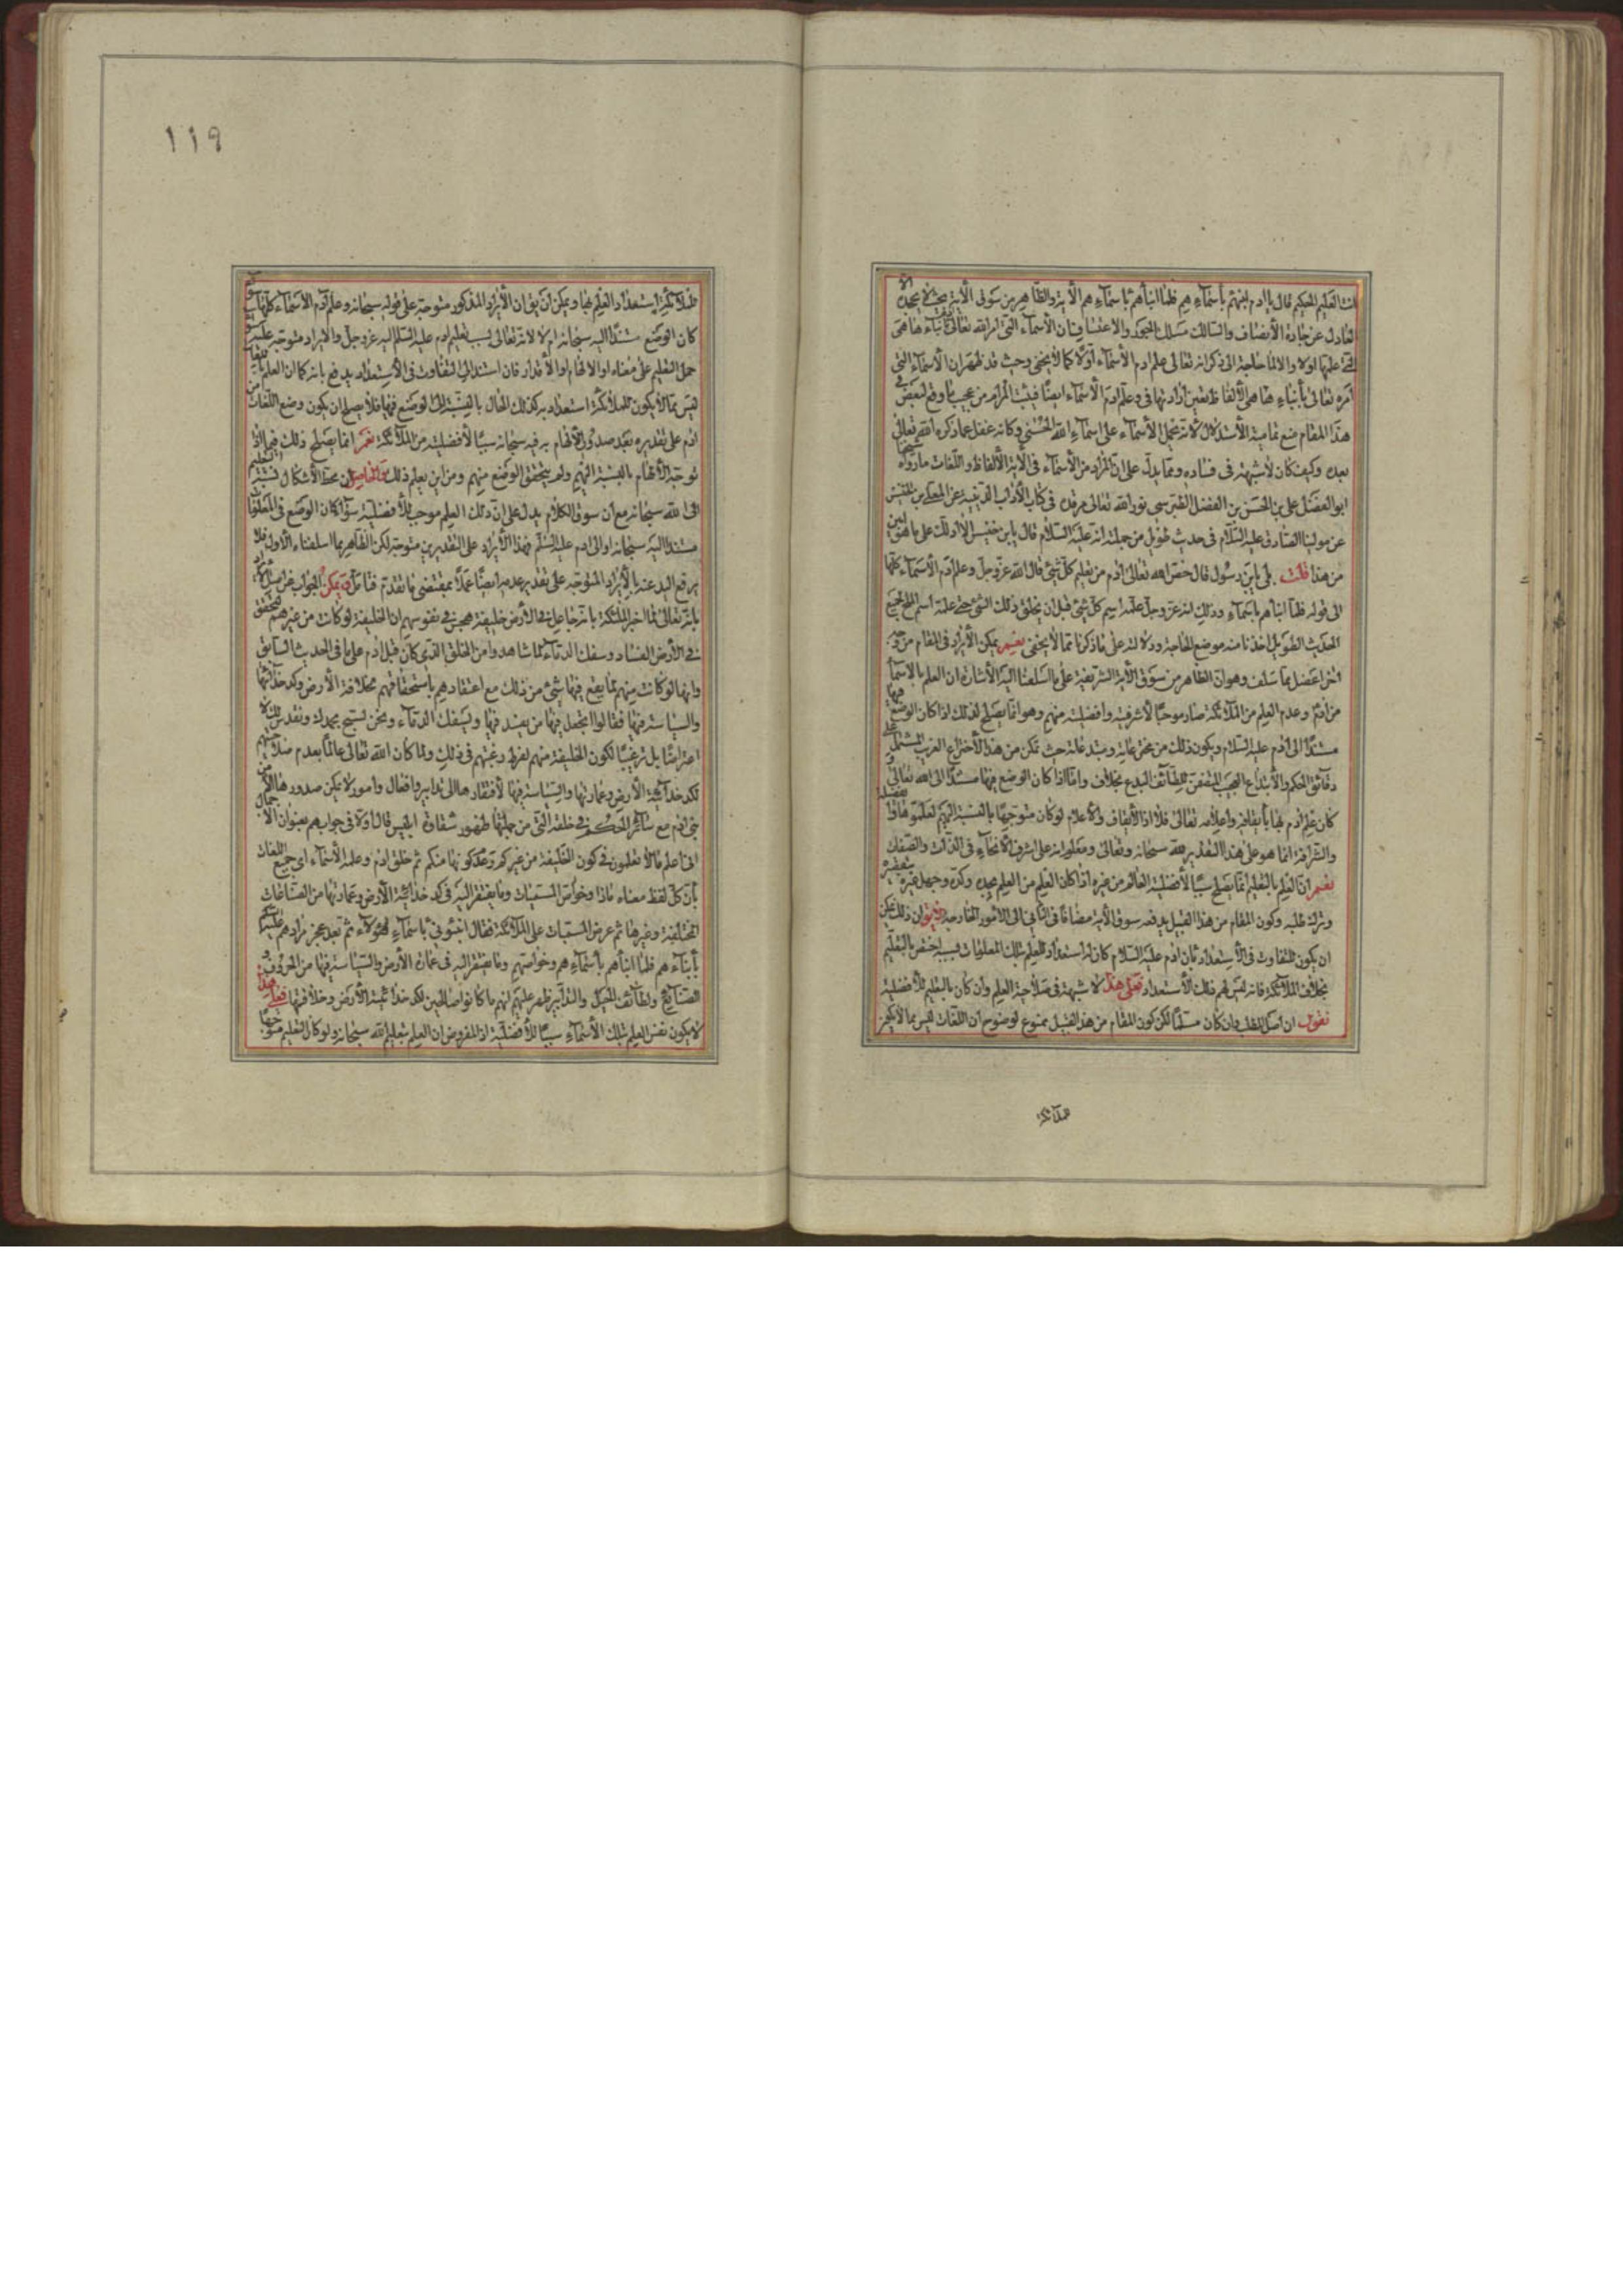 انت العليم الحكيم قال يا ادم انبئهم باسمائهم فلما انبأهم باسمائهم الاية والظاهر من سوق الاية بحيث لا يجده الا
العادل عن جادة الانصاف والسالك مسلك اللجوج والاعتساف ان الاسماء التى امر الله تعالى بانباءها هى
التى علمها اولا والا لما حاجة الى ذكر انه تعالى علم ادم الاسماء اولا كما لا يخفى وحيث قد ظهر ان الاسماء التى
امره تعالى بانباء ها هى الالفاظ تعين ارادتها فى وعلم ادم الاسماء ايضا فيثبت المرام ومن عجيب ما وقع لبعض فى
هذا المقام منع تمامية الاستدلال لانه يحمل الاسماء على اسماء الله الحسنى وكانه غفل عما ذكره الله تعالى
بعده وكيف كان لا شبهة فى فساده ومما يدل على ان المراد من الاسماء فى الاية الالفاظ واللغات ما رواه شيخنا
ابو الفضل على بن الحسن بن الفضل الطبرسى نور الله تعالى مرقده فى كتاب الاداب الدينية عن المعلى بن خنيس
عن مولينا الصادق عليه السلام فى حديث طويل من جملته انه عليه السلام قال يابن خنيس الا ادلك على ما هو ابين
من هذا قلت بلى يابن رسول قال خص الله تعالى ادم من تعليم كل شئ قال الله عز وجل وعلم ادم الاسماء كلها
الى قوله فلما انبأهم باسماءهم وذلك انه عز وجل علمه اسم كل شئ قبل ان يخلق ذلك الشئ حتى علمه اسم الملح الجميع
الحديث الطويل اخذنا منه موضع الحاجة ودلالته على ما ذكرنا مما لا يخفى نعم يمكن الايراد فى المقام من وجه
اخر اعضل مما سلف وهو ان الظاهر من سوق الاية الشريفة على ما اسلفنا اليه الاشارة ان العلم بالاسماء
من ادم وعدم العلم من الملائكة صار موجبا لاشرفيته وافضليته منهم وهو انما يصلح لذلك اذا كان الوضع فيها
مستندا الى ادم عليه السلام ويكون ذلك من مخترعاته ومبتدعاته حيث تمكن من هذا الاختراع الغريب المشتمل على
دقائق الحكم والابتداع العجيب المتضمن للطائف البدع بخلاف واما اذا كان الوضع فيها مستندا الى الله تعالى و
كان علم ادم بها بايقافه واعلامه تعالى فلا اذ الايقاف والاعلام لو كان متوجها بالنسبة اليهم لعلموها
والشرافة انما هو على هذا التقدير لله سبحانه وتعالى ومعلوم انه على اشرف الانحاء فى الذات والصفات
نعم ان العلم بالتعليم انما يصلح سببا لافضلية العالم من غيره اذا كان العلم من العلم بجده وكده وجهل غيره بتقصيره
وترك طلبه وكون المقام من هذا القبيل يدفعه سوق الاية مضافا فى الثانى الى الامور الخارجة فيقول ان ذلك يمكن
ان يكون للتفاوت فى الاستعداد بان ادم عليه السلام كان له استعداد للعلم بتلك المعلومات فبسببه اختص بالتعليم
بخلاف الملائكة فانه ليس لهم ذلك الاستعداد فعلى هذا لا شبهة فى صلاحية العلم وان كان بالتعليم للافضلية
نقول ان اصل المطلب وان كان مسلما لكن كون المقام من هذا القبيل ممنوع لوضوح ان اللغات ليس مما لا يكون
للملائكة
١١٩
للملائكة استعداد العلم بها ويمكن ان يق ان الايراد المذكور متوجه على قوله سبحانه وعلم ادم الاسماء كلها
كان الوضع مستندا اليه سبحانه ام لا لانه تعالى نسب تعليم ادم عليه السلام اليه عز وجل والايراد متوجه عليه
حمل التعليم على معناه او الالهام او الاقدار فان استند الى التفاوت فى الاستعداد يدفع بانه كما ان العلم باللغات
ليس مما لا يكون للملائكة استعداد به كذلك الحال بالنسبة الى الوضع فيها فلا يصلح ان يكون وضع اللغات من
ادم على تقديره بعد صدور الالهام به فيه سبحانه سببا لافضليته من الملائكة نعم انما يصلح ذلك فيما اذا
توجه الالهام بالنسبة اليهم ولم يتحقق الوضع منهم ومن اين يعلم ذلك والحاصل ان محط الاشكال نسبة التعليم
الى الله سبحانه مع ان سوق الكلام يدل على ان ذلك العلم موجب للافضلية سواء كان الوضع فى اللغات
مستندا اليه سبحانه او الى ادم عليه السلم فهذا الايراد على التقديرين متوجه لكن الظاهر بما اسلفناه الاول فلا
يرفع اليد عنه بالايراد المتوجه على تقدير عدمه ايضا عملا بمقتضى ما تقدم فتأمل ويمكن الجواب عن اصل الايراد
بانه تعالى لما اخبر الملئكة بانه جاعل فى الارض خليفة هجز فى نفوسهم ان الخليفة لو كانت من غيرهم لتحقق
فى الارض الفساد وسفك الدماء لما شاهدوا من الخلق الذى كان قبل ادم على ما فى الحديث السابق
وانها لو كانت منهم لما يقع فيها شئ من ذلك مع اعتقادهم باستحقاقهم لخلافة الارض وكدخدائيتها
والسياسة فيها فقالوا اتجعل فيها من يفسد فيها ويسفك الدماء ونحن نسبح بحمدك ونقدس لك لا
اعتراضا بل ترغيبا لكون الخليفة منهم لفرط رغبتهم فى ذلك ولما كان الله تعالى عالما بعدم صلاحيتهم
لكدخدائية الارض وعمارتها والسياسة فيها لافتقارها الى تدابير وافعال وامور لا يمكن صدورها الا من
بنى ادم مع سائر الحكم فى خلقه التى من جملتها ظهور شقاوة ابليس قال اولا فى جوابهم بعنوان الاجمال
انى اعلم ما لا تعلمون فى كون الخليفة من غيركم وعدم كونها منكم ثم خلق ادم وعلمه الاسماء اى جميع اللغات
بان كل لفظ معناه ماذا وخواص المسميات وما يفتقر اليه فى كدخدائية الارض وعمارتها من الصناعات
المختلفة وغيرها ثم عرض المسميات على الملائكة فقال انبئونى باسماء هؤلاء ثم بعد عجزهم امر ادم عليه السلام
بانباءهم فلما انبأهم باسماءهم وخواصهم وما يفتقر اليه فى عمارة الارض والسياسة فيها من الحروف و
الصنايع ولطائف الحيل والتدابير ظهر عليهم انهم ما كانوا صالحين لكدخدائية الارض وخلافتها فعلى هذا
لا يكون نفس العلم بتلك الاسماء سببا للافضلية اذ المفروض ان العلم بتعليم الله سبحانه ولو كان التعليم متوجها